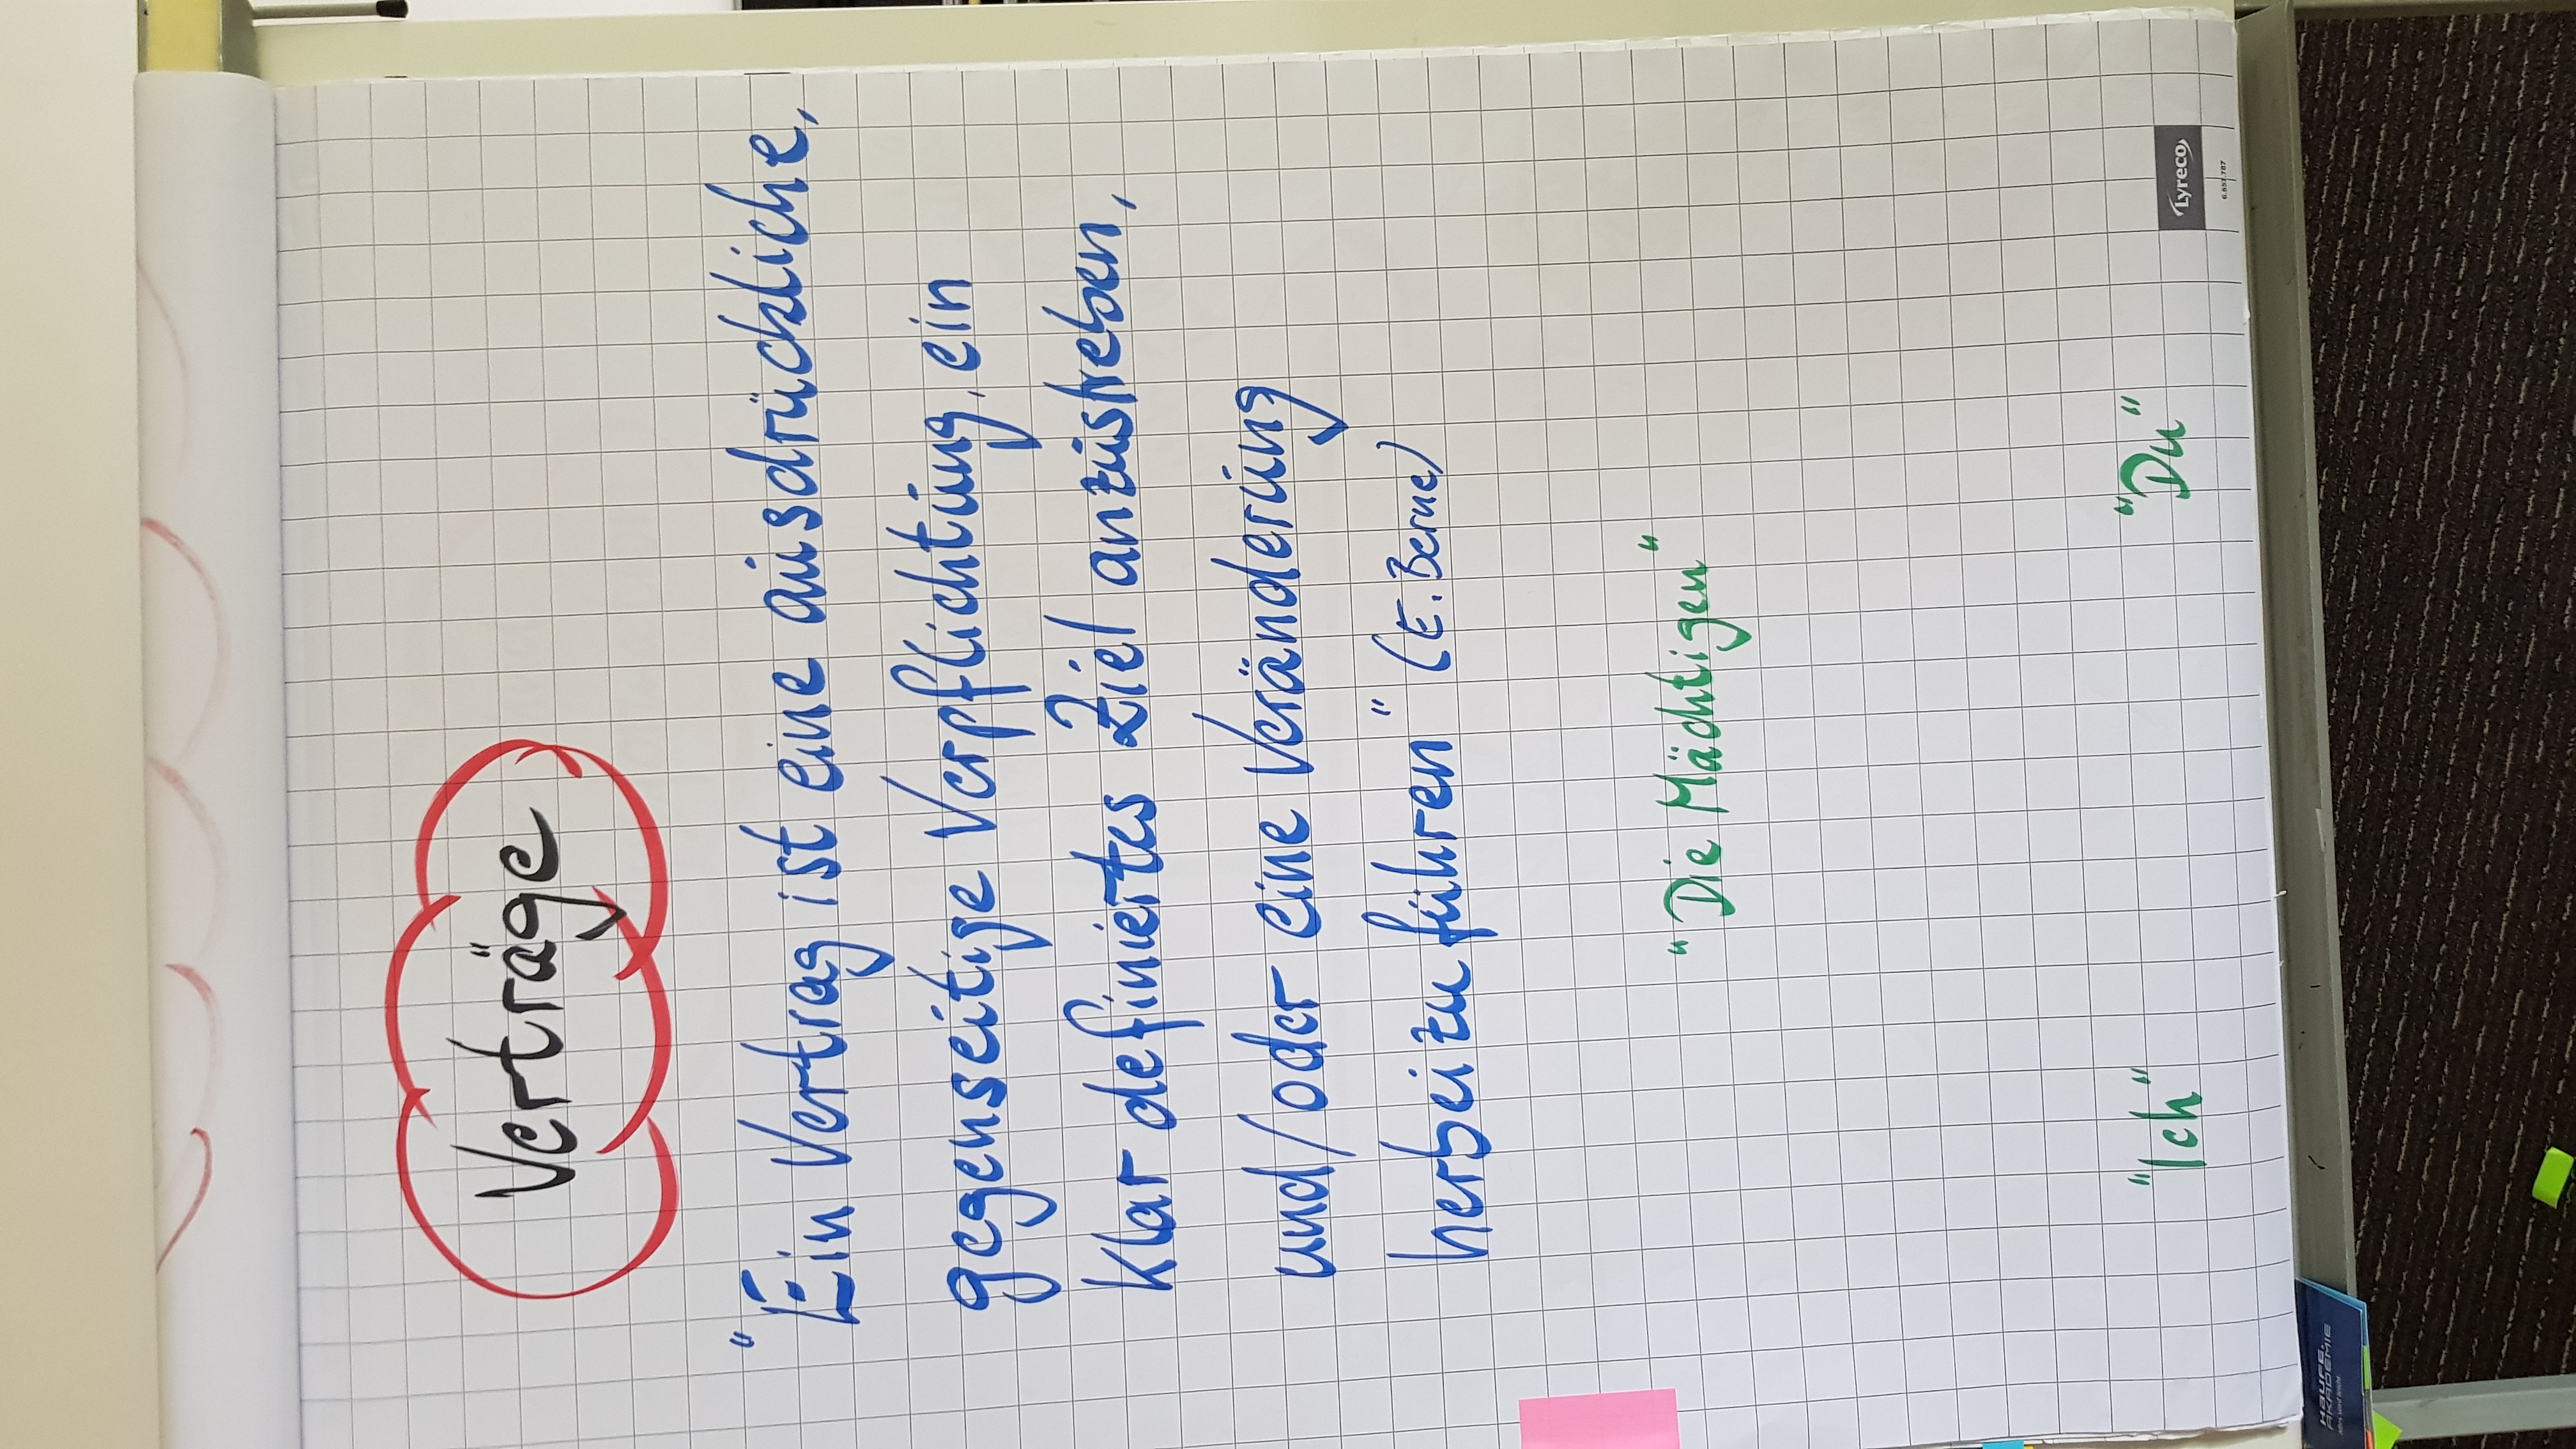 Verträge
"Ein Vertrag ist eine ausdrückliche,
gegenseitige Verpflichtung, ein
klar definiertes Ziel anzustreben,
und/oder eine Veränderung
herbeizuführen" (E. Berne)
"Die Mächtigen"
"Ich" "Du"
Lyreco
6.657.787
HAUFE.
AKADEMIE